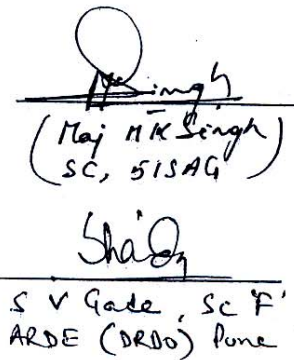 Singh
(Maj MK Singh)
SC, 51SAG
S V Gade, Sc 'F'
ARDE (DRDO) Pune